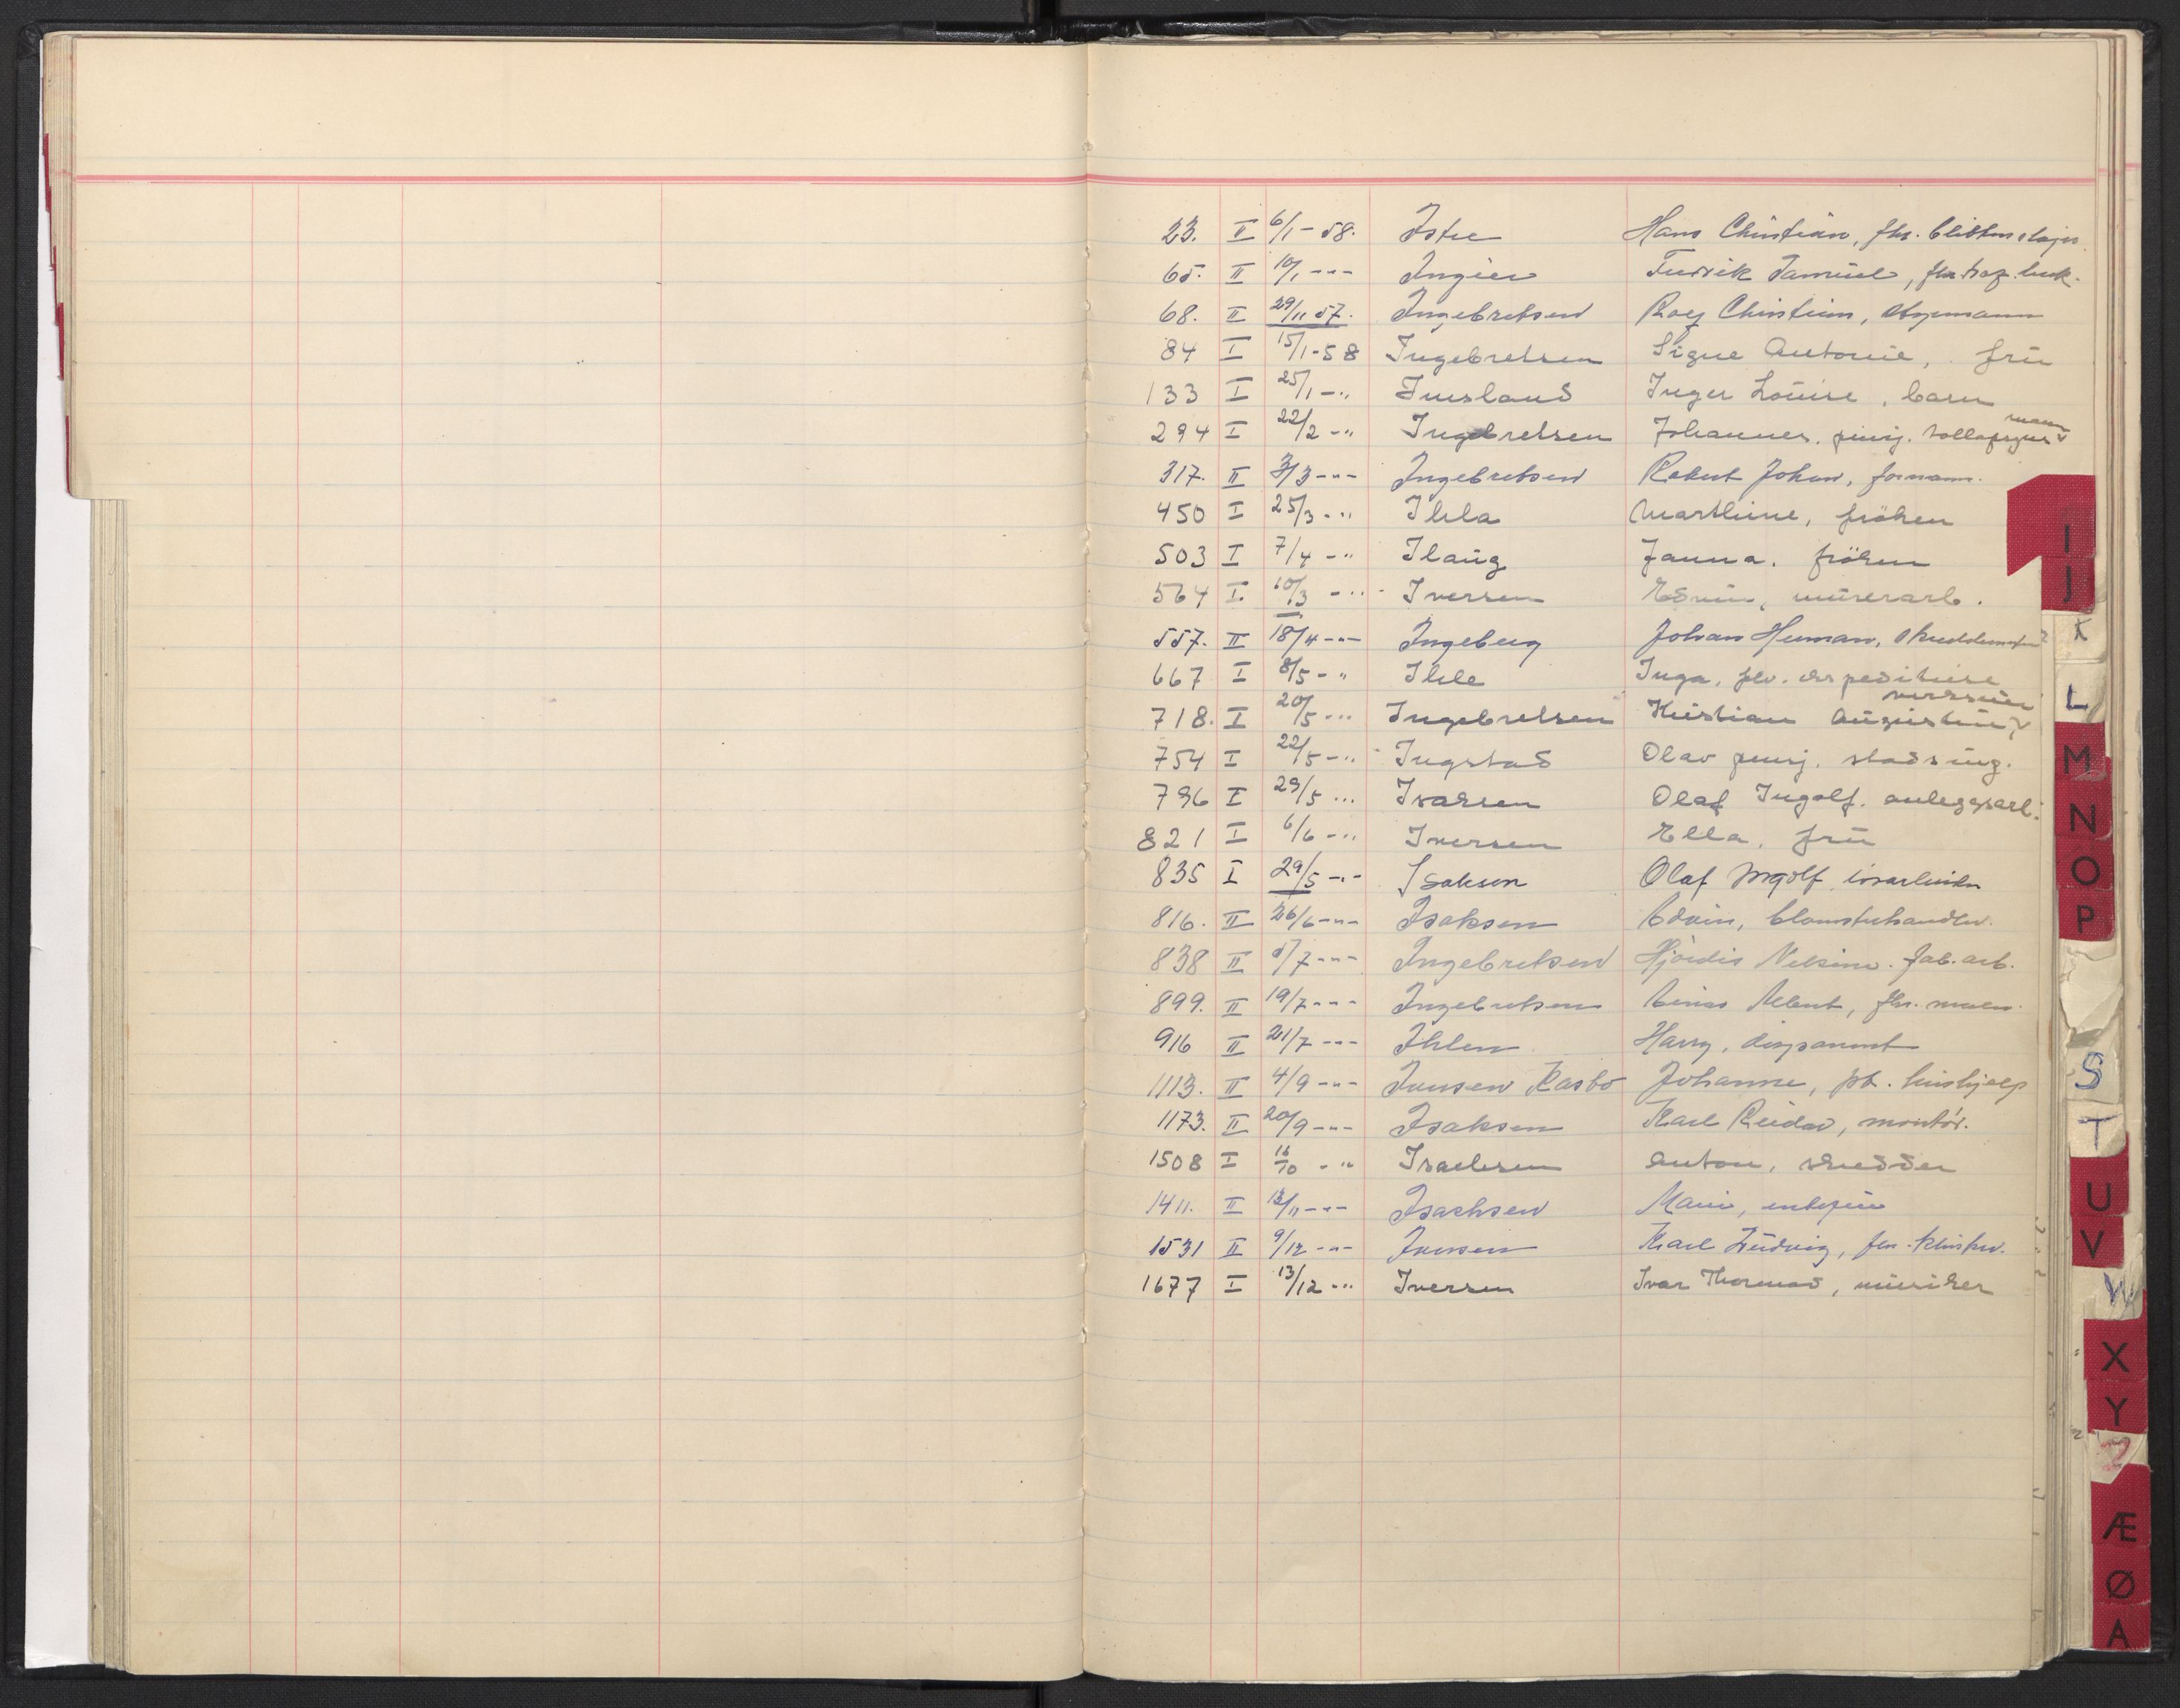 23. II 6/1 - 58. Istre Hans Christian, fhv.
65. II 10/1 -"- Ingier Fredrik Samuel, fhv.
68. II 29/11 57. Ingebretsen Roey Christian,
84 I 15/1-58 Ingebretsen Signe Antonie, frü
133 I 25/1 -" Imsland Inger Loüise, barn
mann
294 I 22/2 -" Ingebretsen Johannes, pensj. tollopsyns
317. II 3/3 -"- Ingebretsen Robert Johan, formann.
450 I 25/3 -" Ihla Marthine, fröken
503 I 7/4 -" Ilaüg Janna. fröken
564 I. 10/3 -" Iversen Edvin, mürerarb.
557. II 18/4 -"- Ingeberg Johan Herman,
667 I 8/5 -" Ihle Inga, fhv. expeditrise
718. I 20/5 -" Ingebretsen Kristian Aügüstin
754 I 22/5 -" Ingstad Olav pensj. stadsing.
796 I 29/5 -" Isaksen Olaf Ingolf. anleggsarb.
821 I 6/6 -" Iversen Ella, frü
835 I 29/5 -"- Isaksen Olaf Ingolf
816. II 26/6 -"- Isaksen Edvin, blomsterhandler.
838 II 5/7 -"- Ingebretsen Hjördis Nelsine. fab. arb.
899. II 19/7 -"- Ingebretsen Albert, fhv. maler.
916 II 21/7 -"- Ihlen Harry, disponent
1113. II 4/9 -"- Iversen Kasbo Johanne, hüshjelp
1173. II 20/9 -"- Isaksen Karl Reidar, montör.
1508 I 16/10 -" Israelsen Anton, skredder
1411. II 13/11 -"- Isachsen Marie, enkefrü
1531 II 9/12 -"- Iversen Karl Lüdvig, fhv.
1677 I 13/12 -" Iversen Ivar Thomas, müsiker
I
J
K
L
M
N
O
P
S
T
U
V
W
X
Y
Z
Æ
Ø
A